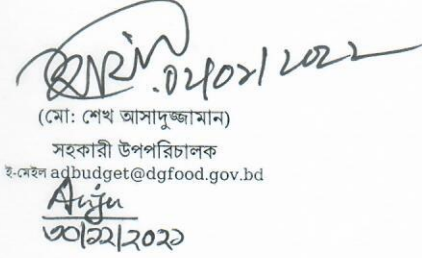 ০২/০১/২০২২
(মো: শেখ আসাদুজ্জামান)
সহকারী উপপরিচালক
ই-মেইল adbudget@dgfood.gov.bd
Anju
৩০/১২/২০২১